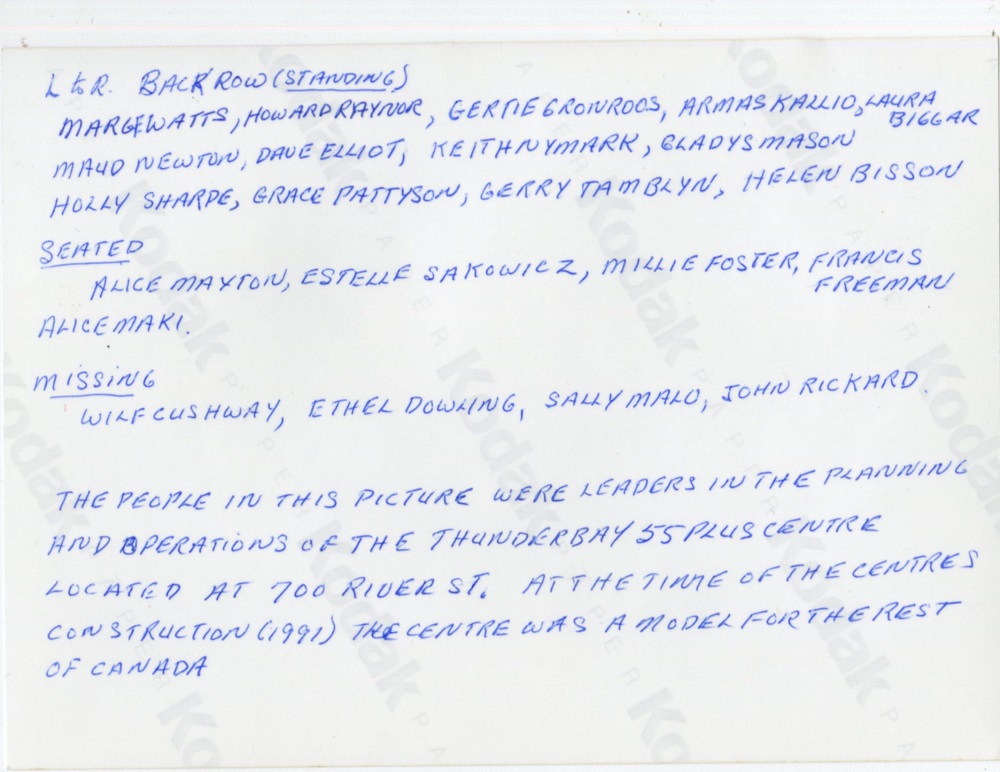 L to R. BACK ROW (STANDING)
MARGE WATTS, HOWARD RAYNOR, GERTIE GRONROOS, ARMAS KALLIO, LAURA BIGGAR
MAUD NEWTON, DAVE ELLIOT, KEITH NYMARK, GLADYS MASON
HOLLY SHARPE, GRACE PATTYSON, GERRY TAMBLYN, HELEN BISSON
SEATED
ALICE MAXTON, ESTELLE SAKOWICZ, MILLIE FOSTER, FRANCIS FREEMAN
ALICE MAKI.
MISSING
WILF CUSHWAY, ETHEL DOWLING, SALLY MALO, JOHN RICKARD.
THE PEOPLE IN THIS PICTURE WERE LEADERS IN THE PLANNING
AND OPERATIONS OF THE THUNDERBAY 55 PLUS CENTRE
LOCATED AT 700 RIVER ST. AT THE TIME OF THE CENTRES
CONSTRUCTION (1991) THE CENTRE WAS A MODEL FOR THE REST
OF CANADA